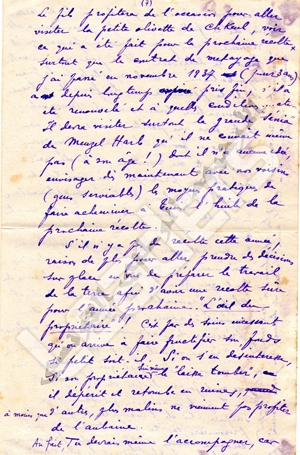 (7)
Le fil profitera de l'occasion pour aller
visiter la petite olivette de Chekul, voir
ce qui a été fait pour la prochaine récolte
surtout que le contrat de métayage que
j'ai passé en novembre 1937 (pour 3 ans)
a depuis longtemps pris fin, s'il a
été renouvelé et à quelles conditions...etc
Il devra visiter surtout la grande Sénia
de Menzel Harb qu'il ne connaît même
pas (à son âge!) dont il n'a aucune idée,
envisager dès maintenant avec nos voisins
(gens serviables) le moyen pratique de
faire acheminer à Tunis l'huile de la
prochaine récolte.
S'il n'y a pas de récolte cette année,
raison de plus pour aller prendre des décisions
sur place en vue de préparer le travail
de la terre afin d'avoir une récolte sûre
pour l'année prochaine. "L'œil du
propriétaire"! C'est par des soins incessants
qu'on arrive à faire fructifier son fonds
si petit soit-il. Si on s'en désintéresse,
Si son propriétaire le laisse tomber,
il dépérit et retombe en ruines,
à moins que d'autres, plus malins ne viennent pas profiter
de l'aubaine.
Au fait, Tu devrais même l'accompagner, car